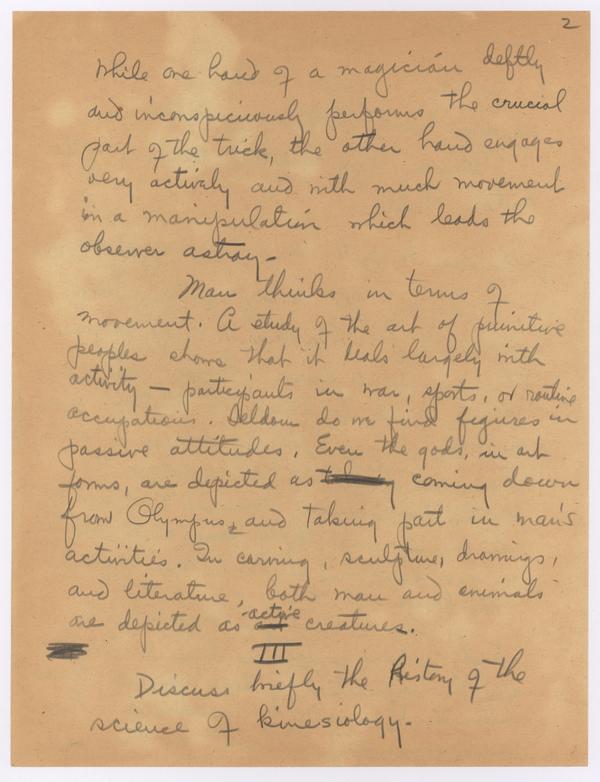 2
While one hand of a magician deftly
and inconspicuously performs the crucial
part of the trick, the other hand engages
very actively and with much movement
in a manipulation which leads the
observer astray.
Man thinks in terms of
movement. A study of the art of primitive
peoples shows that it deals largely with
activity — participants in war, sports, or routine
occupations. Seldom do we find figures in
passive attitudes. Even the gods, in art
forms, are depicted as coming down
from Olympus, and taking part in man's
activities. In carving, sculpture, drawings,
and literature, both man and animals
are depicted as active creatures.
III
Discuss briefly the History of the
science of kinesiology.